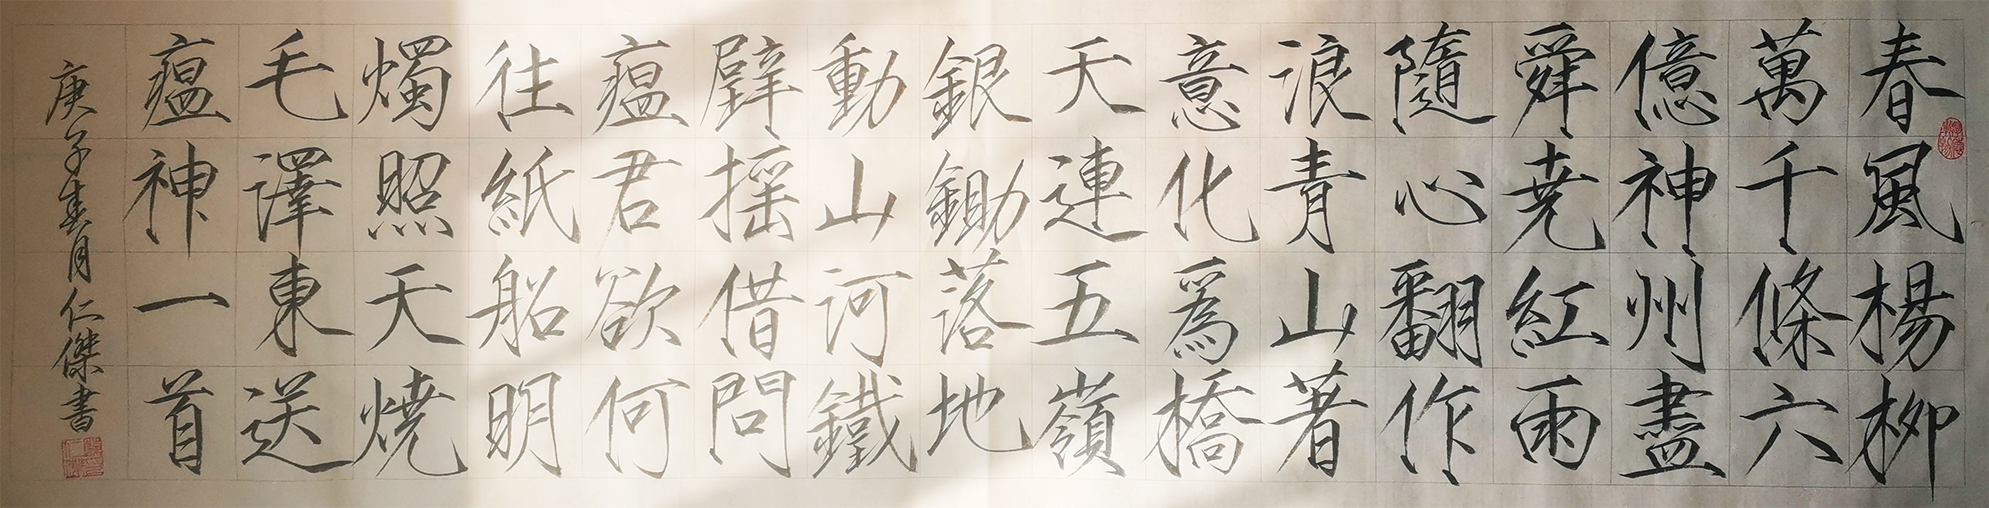 春風楊柳
萬千條六
億神州盡
舜尭紅雨
隨心翻作
浪青山著
意化為橋
天連五嶺
銀鋤落地
動山河鐵
臂摇借問
瘟君欲何
往紙船明
燭照天焼
毛澤東送
瘟神一首
庚子春月仁傑書